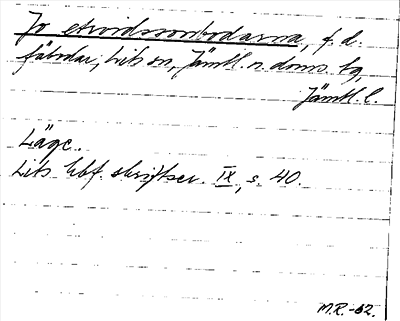 Jo etvordssonbodarna, f.d.
fäbodar, Lits sn, Jämtl. n. doms. tg,
Jämtl. l.
Läge.
Lits hbf. skrifter. IX, s. 40.
M.R.-62.